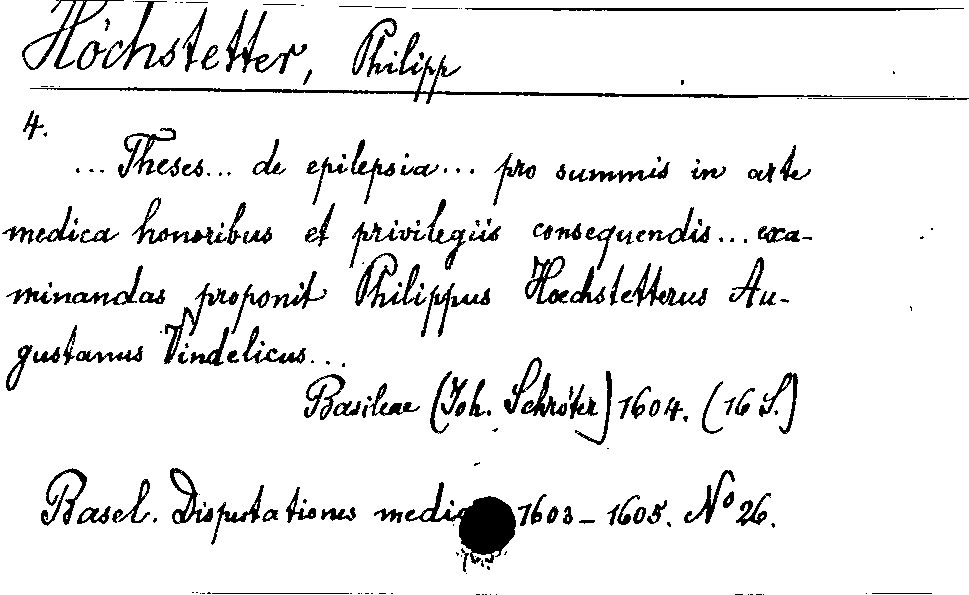 Höchstetter, Philipp
4.
... Theses... de epilepsia... pro summis in arte
medica honoribus et privilegiis consequendis... exa-
minandas proponit Philippus Hoechstetterus Au-
gustanus Vindelicus...
Basileae (Joh. Schröter) 1604. (16 S.)
Basel. Disputationes medic 1603-1605. No 26.